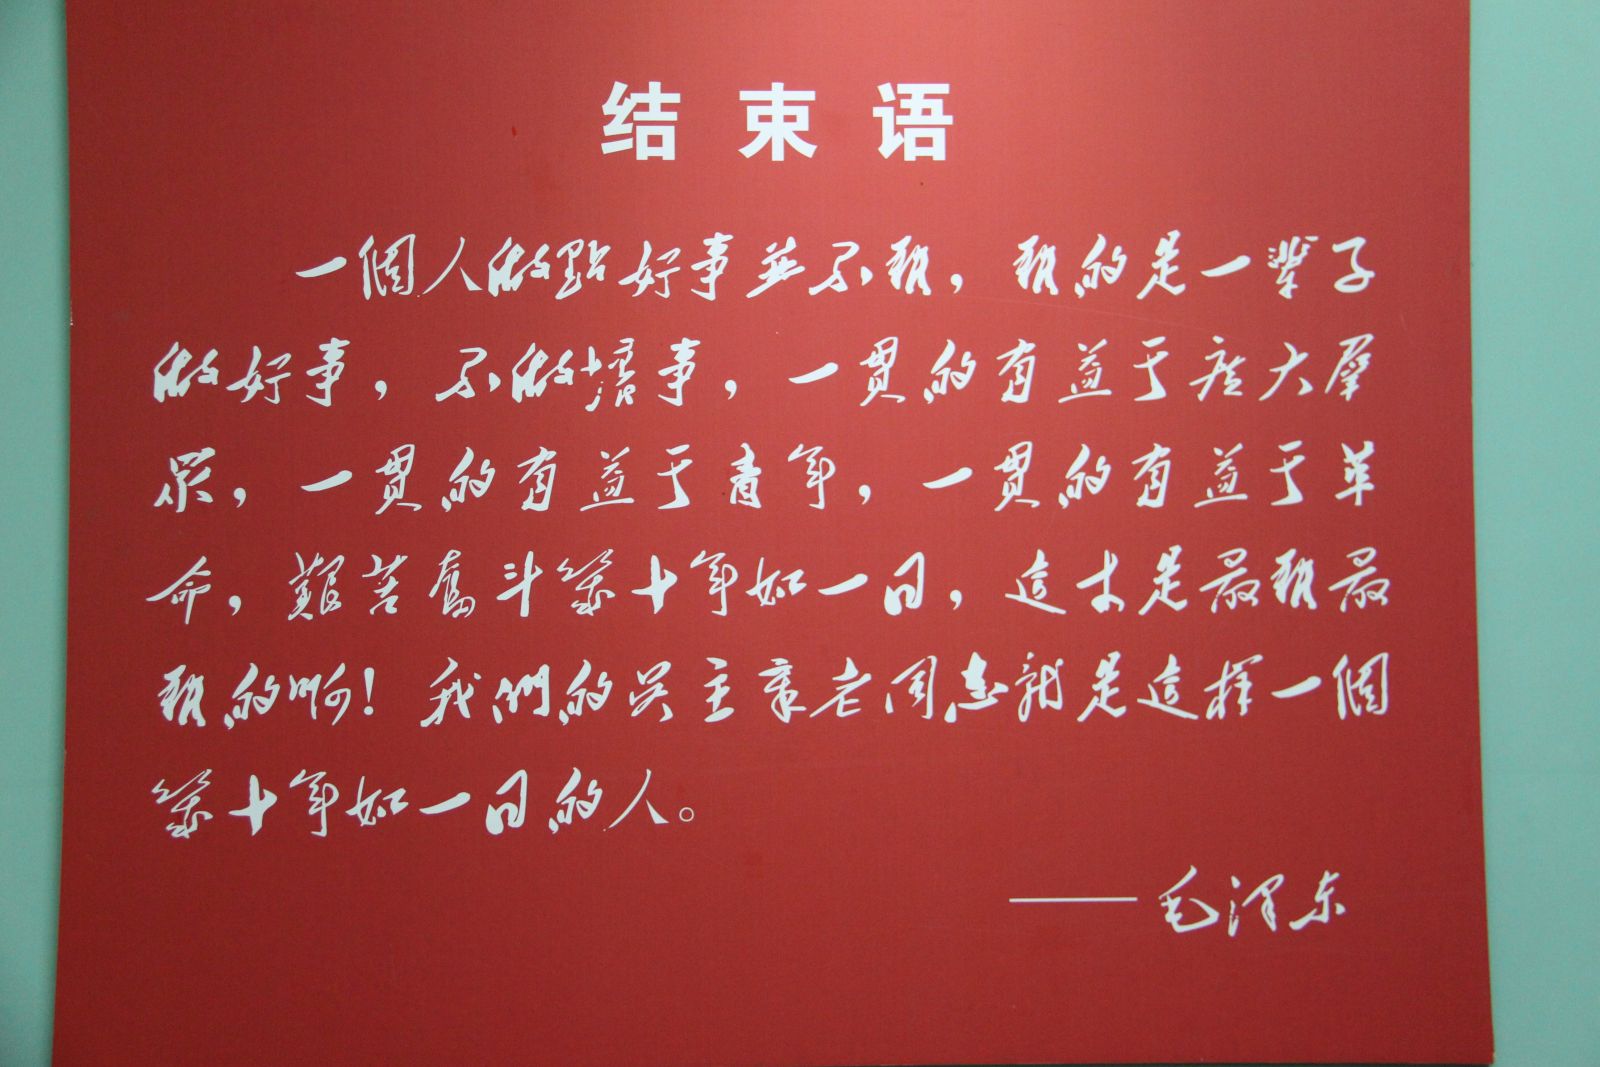 结束语
一個人做點好事並不難，難的是一輩子
做好事，不做壞事，一貫的有益于廣大羣
眾，一貫的有益于青年，一貫的有益于革
命，艱苦奮斗幾十年如一日，這才是最難最
難的啊！我們的吴玉章老同志就是這樣一個
幾十年如一日的人。
——毛澤东